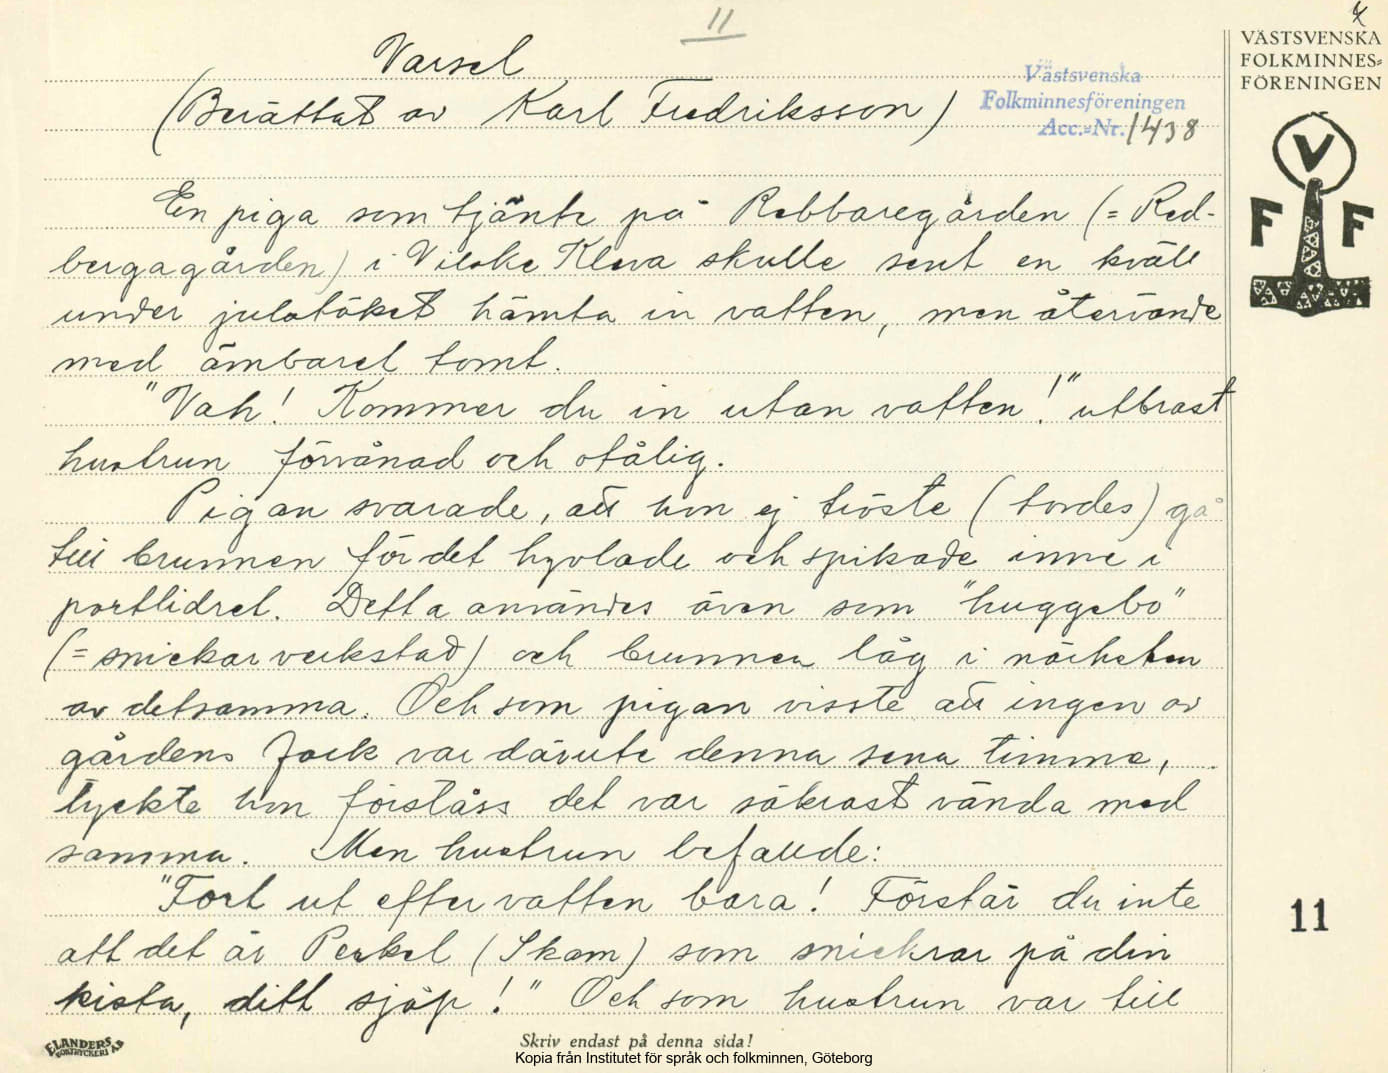 11
4
VÄSTSVENSKA
FOLKMINNES=
FÖRENINGEN
Varsel
(Berättat av Karl Fredriksson)
Västsvenska
Folkminnesföreningen
Acc.=Nr. 1438
V
F F
En piga som tjänte på Rebbaregården (= Red-
bergagården) i Vilske Kleva skulle sent en kväll
under julstöket hämta in vatten, men återvände
med ämbaret tomt.
"Vah! Kommer du in utan vatten!" utbrast
hustrun förvånad och otålig.
Pigan svarade, att hon ej tröste (tordes) gå
till brunnen för det hyvlade och spikade inne i
portlidret. Detta användes även som "huggebo"
(= snickarverkstad) och brunnen låg i närheten
av detsamma. Och som pigan visste att ingen av
gårdens folk var därute denna sena timme,
tyckte hon förståss det var säkrast vända med
samma. Men hustrun befallde:
"Fort ut efter vatten bara! Förstår du inte
att det är Perkel (Skam) som snickrar på din
kista, ditt sjåp!" Och som hustrun var till
11
ELANDERS
BOKTRYCKERI AB
Skriv endast på denna sida!
Kopia från Institutet för språk och folkminnen, Göteborg